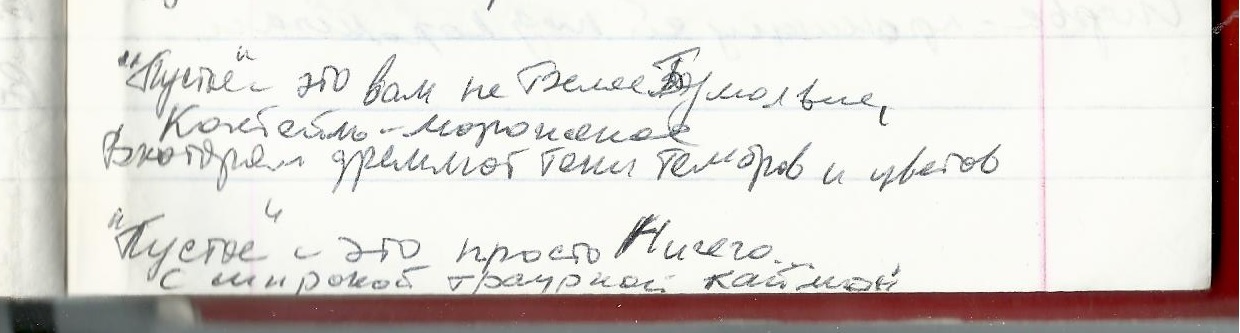 "Пустое" - это вам не Белое Безмолвие,
Коктейль-мороженое
В котором дремлют тени тембров и цветов
"Пустое" - это просто Ничего...
С широкой траурной каймой